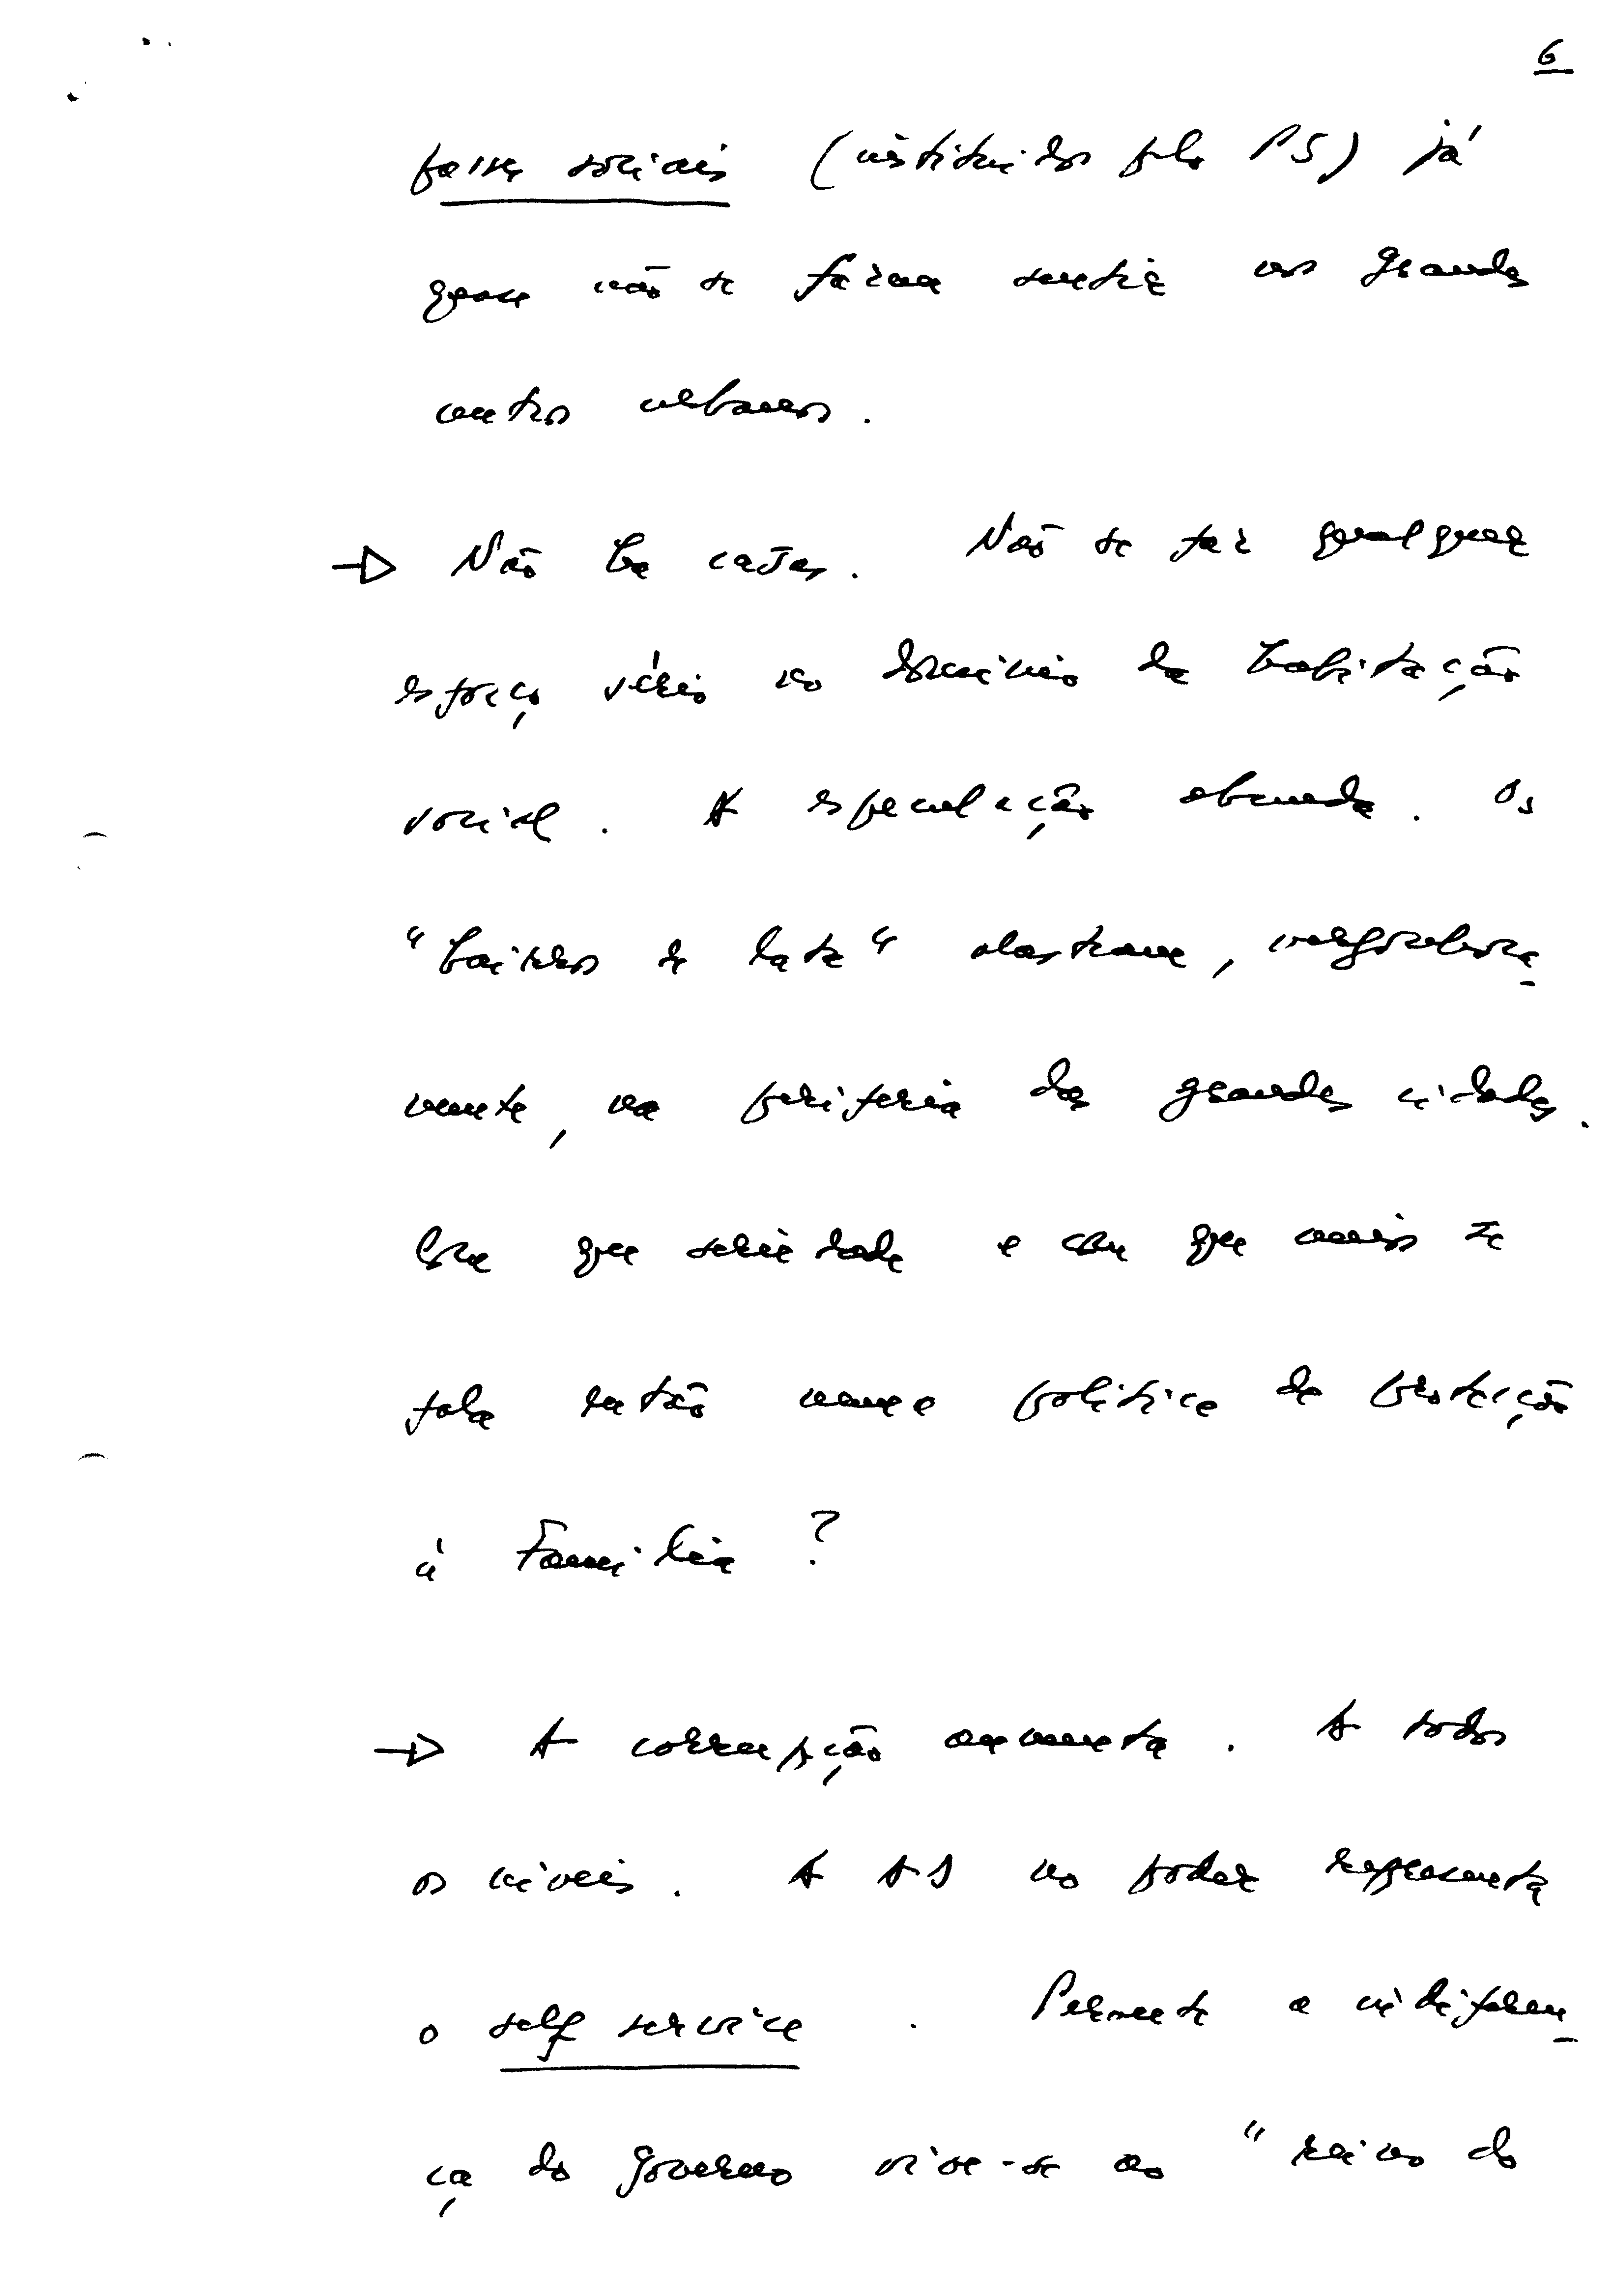 6
passes sociais (instituidos pelo PS) já
quase não se fazem sentir nos grandes
centros urbanos.
→ Não há casas. Não se faz qualquer
esforço sério no dominio da habitação
social. A especulação abunda. Os
"bairros de lata" alastram, vergonhosa-
mente, na periferia das grandes cidades.
Com que seriedade e com que meios se
fala então numa politica de protecção
à Familia?
→ A corrupção aumenta. A todos
os níveis. A AD no poder representa
o self service. Perante a indiferen-
ça do Governo vive-se no "reino do